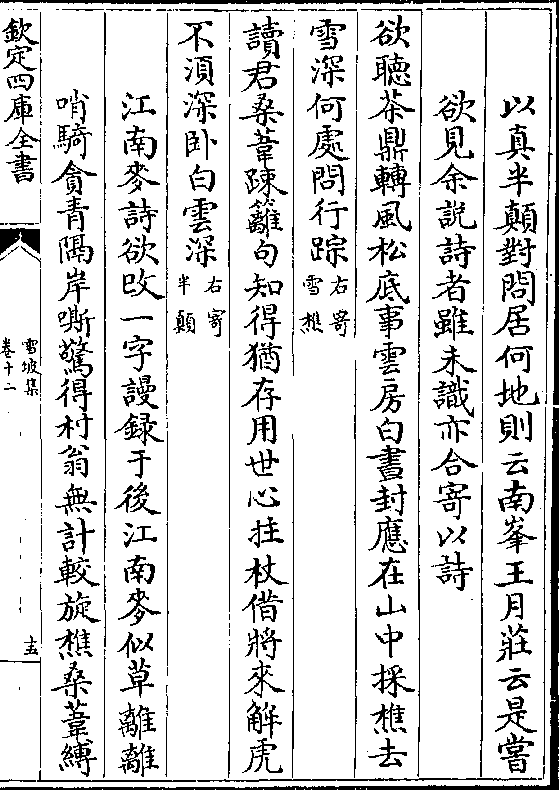 以真半顛對問居何地則云南峯王月莊云是嘗
欲見余説詩者雖未識亦合寄以詩
欲聽茶鼎轉風松底事雲房白晝封應在山中採樵去
雪深何處問行踪右寄雪樵
讀君桑葦踈籬句知得猶存用世心拄杖借將來解虎
不湏深卧白雲深右寄半顛
江南麥詩欲改一字謾録于後江南麥似草離離
哨騎貪青隔岸嘶驚得村翁無計較旋樵桑葦縳
欽定四庫全書
雪坡集
卷十二
十五